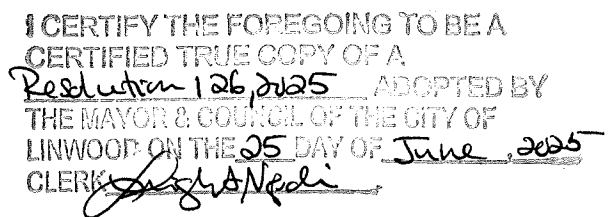 I CERTIFY THE FOREGOING TO BE A
CERTIFIED TRUE COPY OF A
Resolution 126, 2025 ADOPTED BY
THE MAYOR & COUNCIL OF THE CITY OF
LINWOOD ON THE 25 DAY OF June, 2025
CLERK